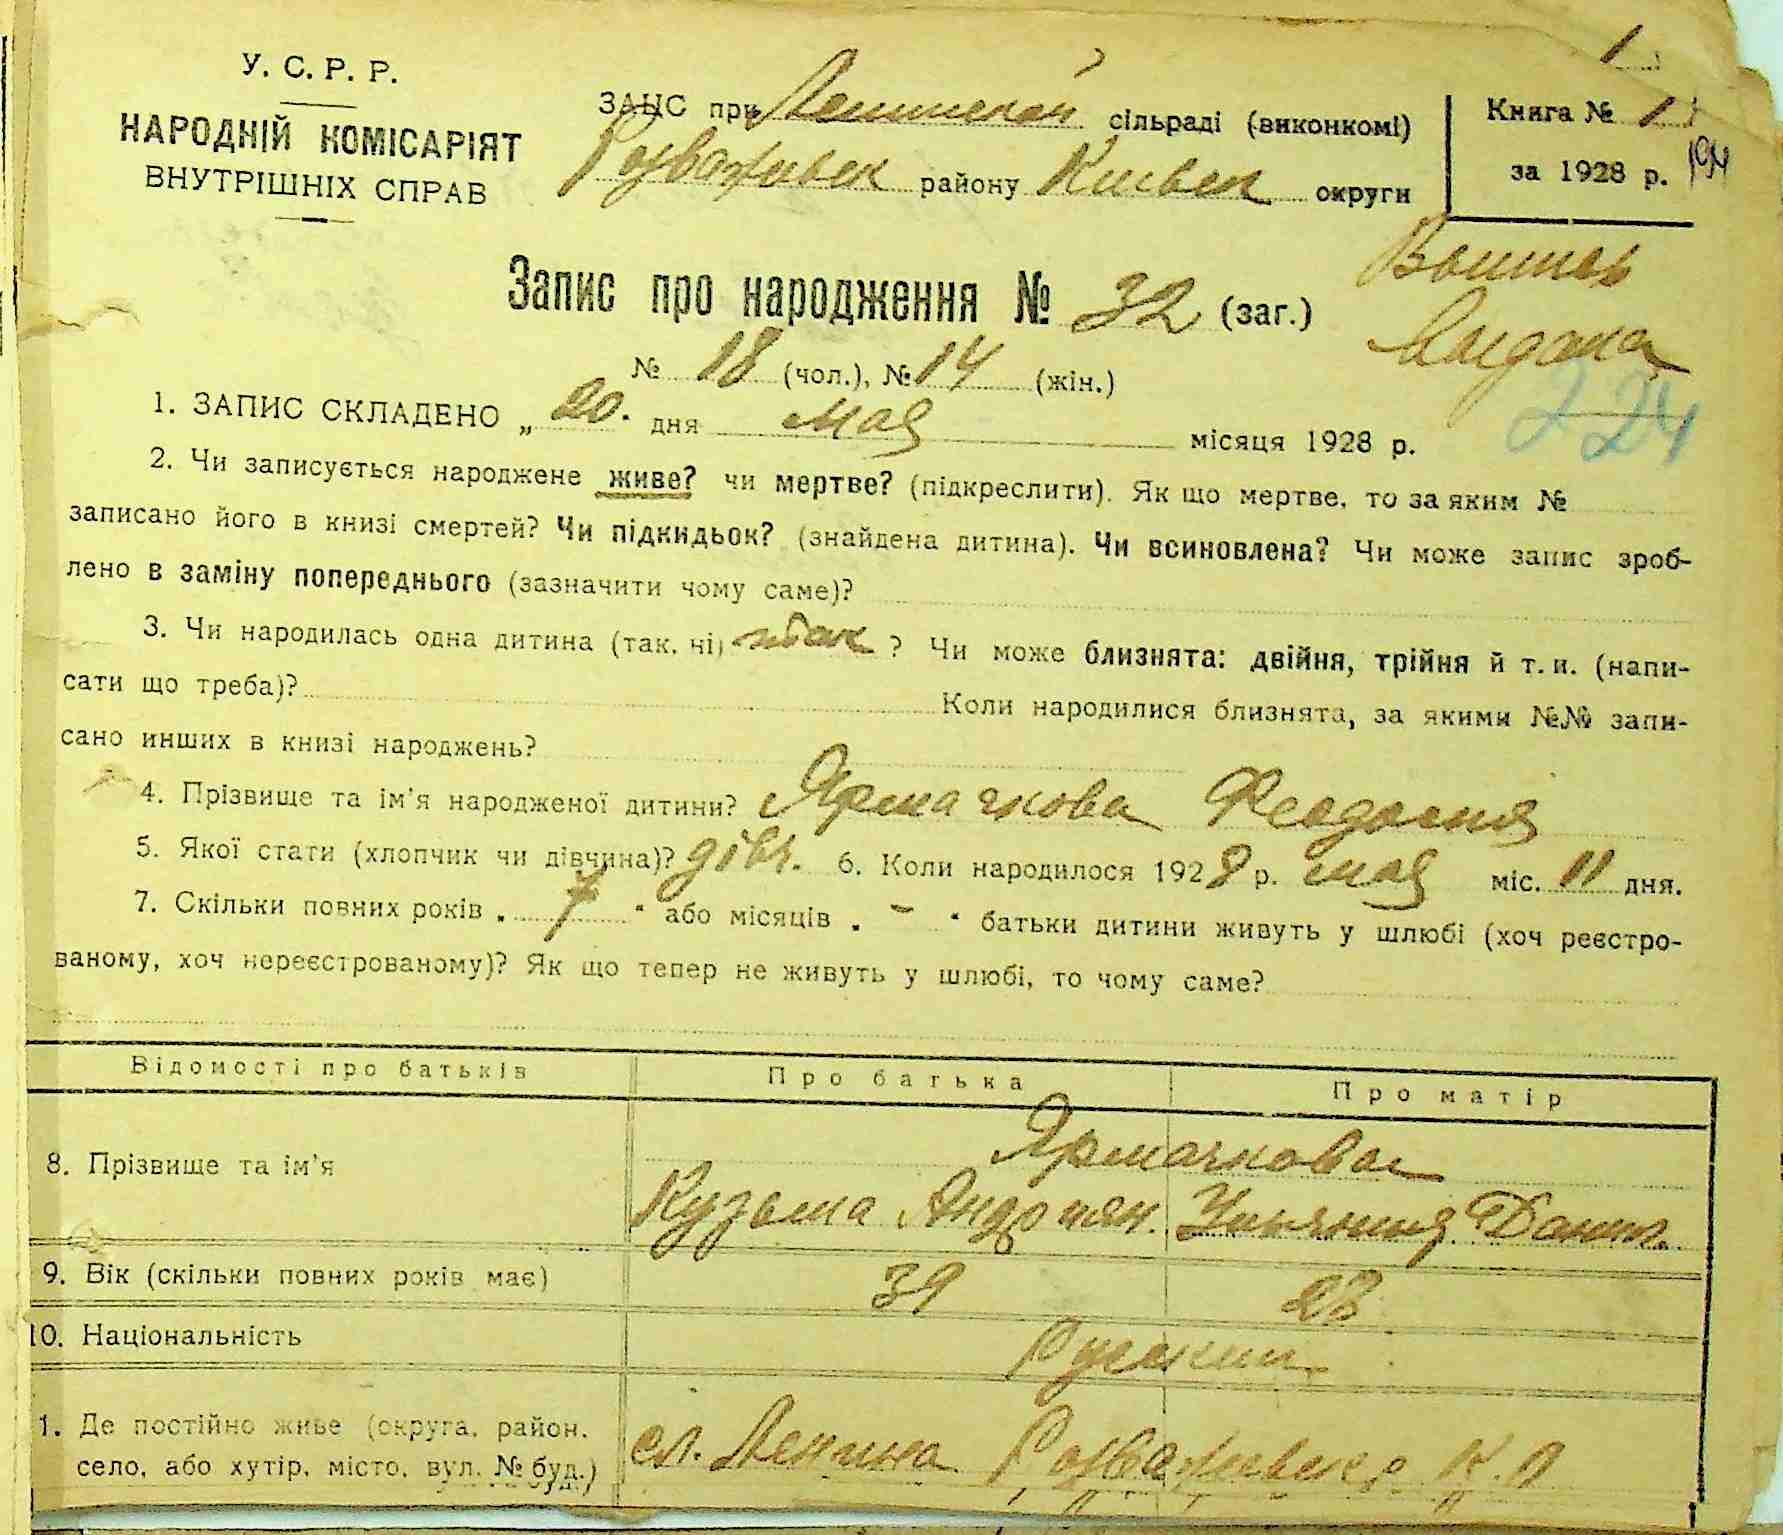 1
У. С. Р. Р.
НАРОДНІЙ КОМІСАРІЯТ
ВНУТРІШНІХ СПРАВ
ЗАЦС при Ленинской сільраді (виконкомі)
Розважівськ району Київськ округи
Книга № 1
за 1928 р.
194
Запис про народження № 32 (заг.)
№ 18 (чол.), № 14 (жін.)
224
1. ЗАПИС СКЛАДЕНО „ 20. дня мая місяця 1928 р.
2. Чи записується народжене живе? чи мертве? (підкреслити). Як що мертве, то за яким №
записано його в книзі смертей? Чи підкидьок? (знайдена дитина). Чи всиновлена? Чи може запис зроб-
лено в заміну попереднього (зазначити чому саме)?
3. Чи народилась одна дитина (так, ні) так ? Чи може близнята: двійня, трійня й т. и. (напи-
сати що треба)? Коли народилися близнята, за якими №№ запи-
сано инших в книзі народжень?
4. Прізвище та ім'я народженої дитини? Ярмачкова Феодосия
5. Якої стати (хлопчик чи дівчина)? дівч. 6. Коли народилося 1928 р. мая міс. 11 дня.
7. Скільки повних років „ 7 " або місяців „ - " батьки дитини живуть у шлюбі (хоч реєстро-
ваному, хоч нереєстрованому)? Як що тепер не живуть у шлюбі, то чому саме?
Відомості про батьків Про батька Про матір
8. Прізвище та ім'я Ярмачкова
Кузьма Андриян. Данил.
9. Вік (скільки повних років має) 39 28
10. Національність Руский
1. Де постійно живе (округа, район,
село, або хутір, місто, вул. № буд.) сл. Ленина Розважівськ. К. О